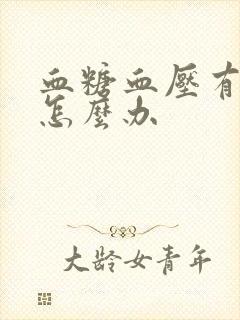 血糖血壓有
怎麼办
大龄女青年